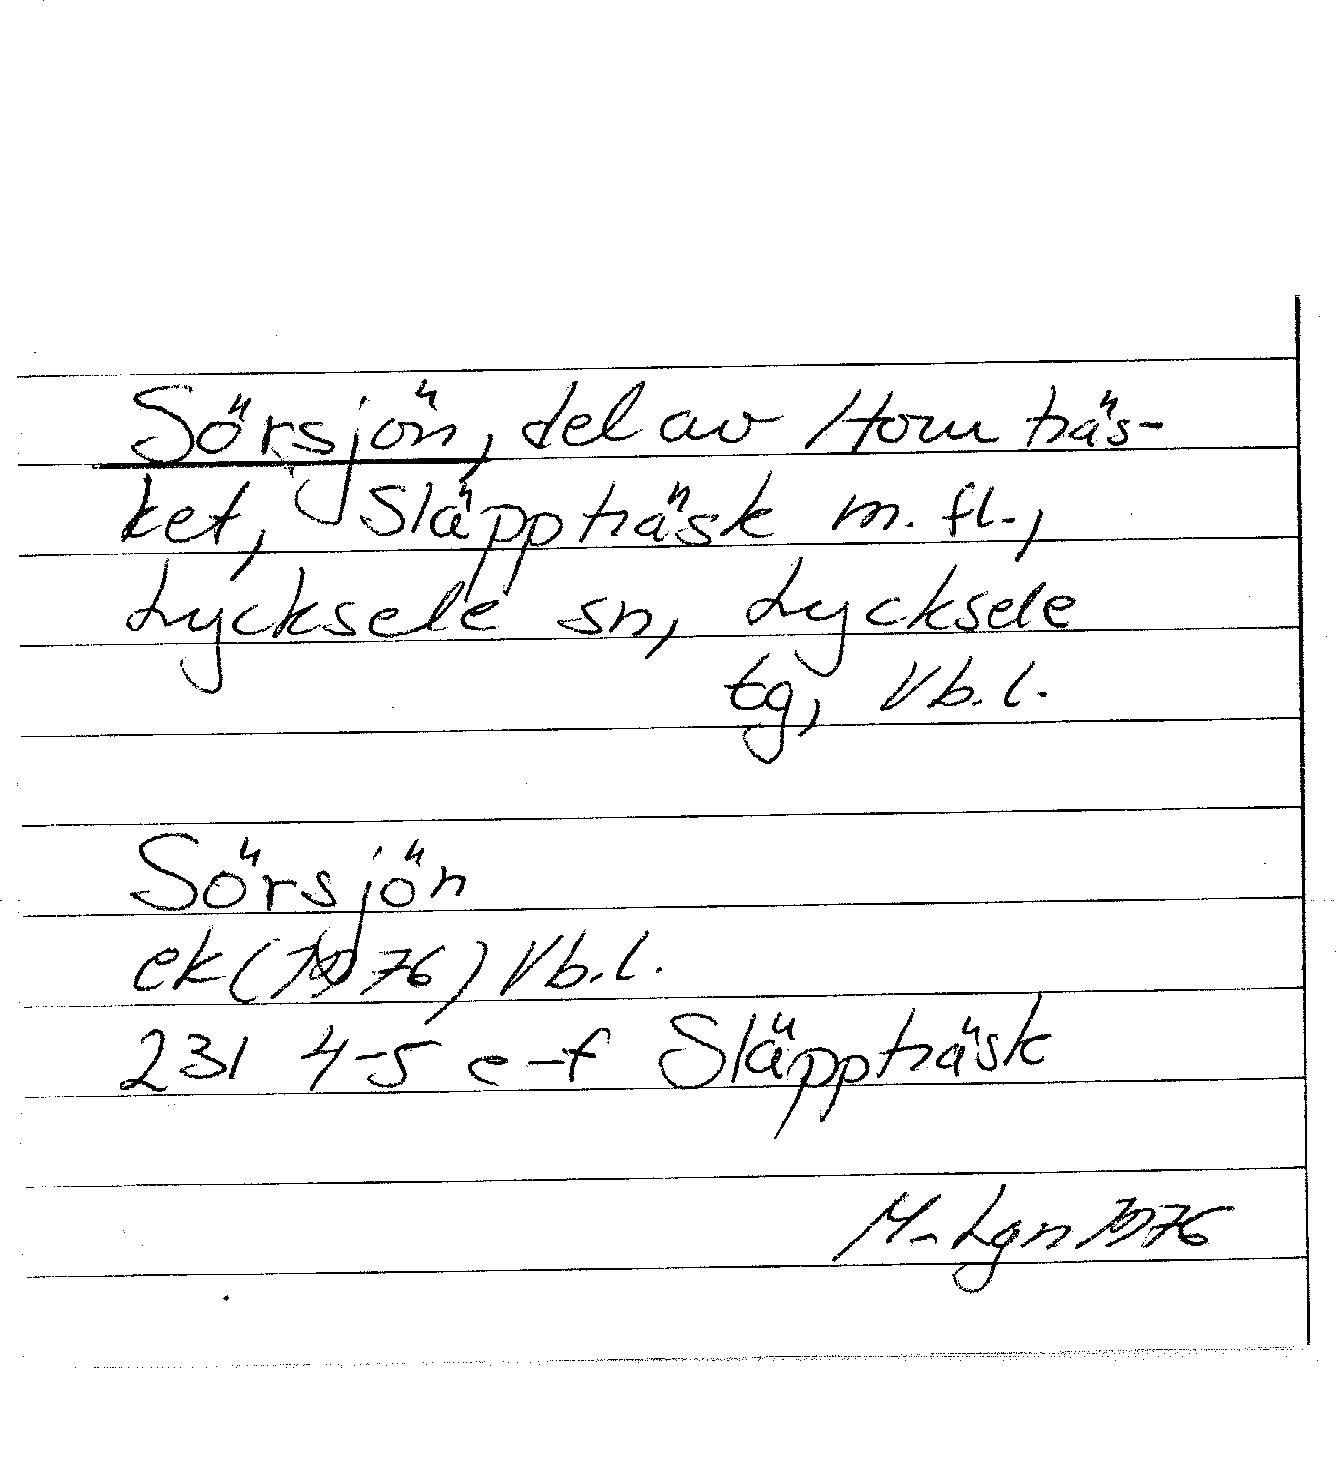 Sörsjön, del av Hornträs-
ket, Släppträsk m. fl.,
Lycksele sn, Lycksele
tg, Vb. l.
Sörsjön
ek (1976) Vb. l.
231 4-5 e-f Släppträsk
M-Lgn 1976